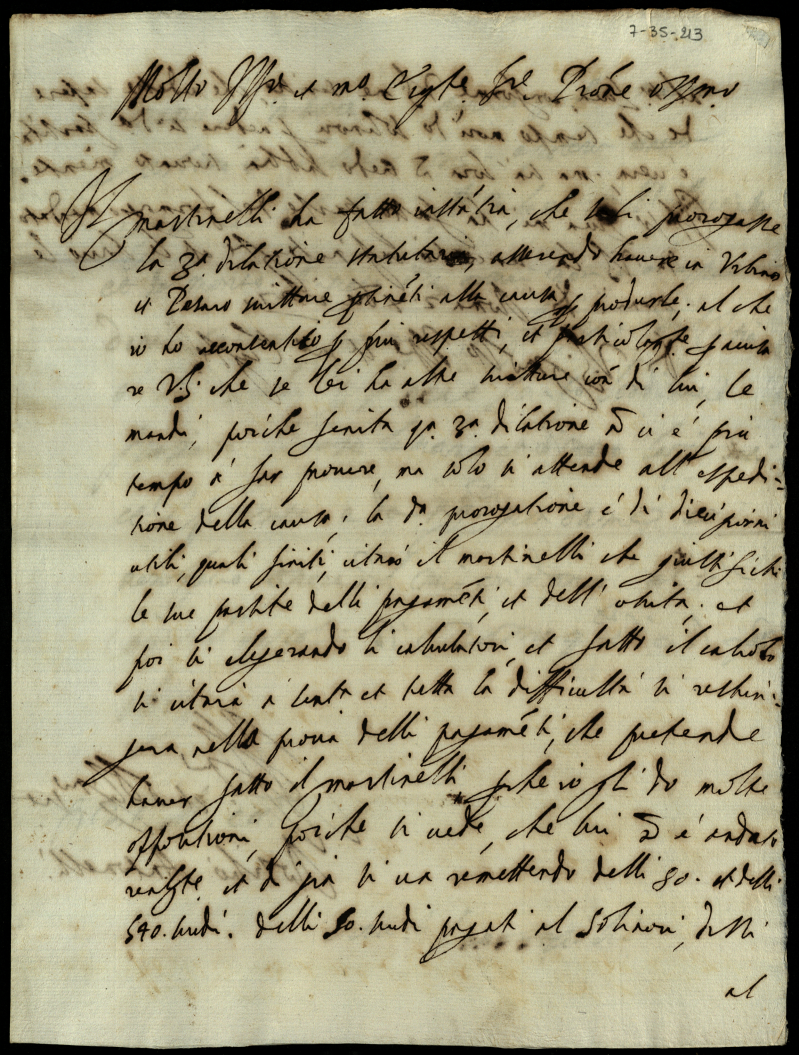 7-35-213
Molto Ill.re et m.o Ecc.te Sr.e Prone oss.mo
Il martinelli ha fatto instātia, che se li prorogasse
la 3.a dilatione statutaria, asserendo havere in Urbino
et Pesaro scritture ptinēti alla causa p produrle, al che
io ho acconsentito p più rispetti, et particolarte p avisa
re V.S. che se lei ha altre scritture cōā di lui, le
mandi, poiche finita qa. 3.a dilatione nō ci è più
tempo à far provere, ma solo si attende all' espedi-
tione della causa; la da. prorogatione è di dieci giorni
utili, quali finiti, citarò il martinelli che giustifichi
le sue partite delli pagamēti, et dell' ; et
poi si elegerando li calculatori, et fatto il calcolo
si citarà a sentā et tutta la difficultà si restrin-
gerà nella prova delli pagamēti, che pretende
haver fatto il martinelli pche io gli do molte
oppositioni, poiche si vede, che lui nō è andato
realmte. et di già si va remettendo delli 50. et delli
540. scudi. delli 50. scudi pagati al Solinori, dissi
al